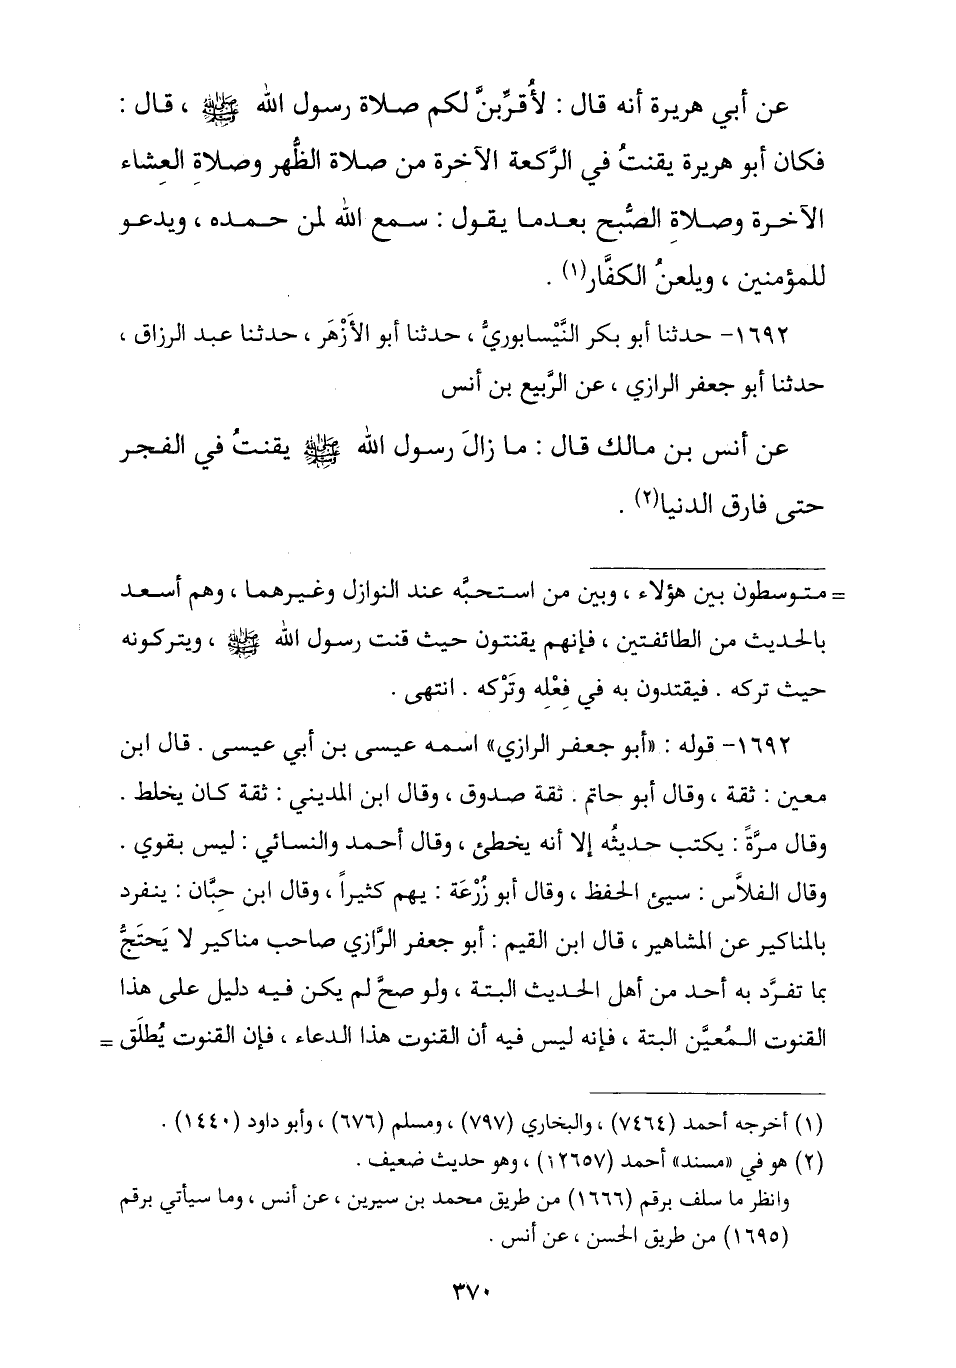 عن أبي هريرة أنه قال : لأُقرِّبنَّ لكم صلاة رسول الله ﷺ ، قال :
فكان أبو هريرة يقنتُ في الرَّكعة الآخرة من صلاة الظُّهر وصلاةِ العشاء
الآخرة وصلاةِ الصُّبح بعدما يقول : سمع اللهُ لمن حمده ، ويدعو
للمؤمنين ، ويلعنُ الكفَّار(١) .
١٦٩٢- حدثنا أبو بكر النَّيْسابوريُّ ، حدثنا أبو الأَزْهَر ، حدثنا عبد الرزاق ،
حدثنا أبو جعفر الرازي ، عن الرَّبيع بن أنس
عن أنس بن مالك قال : ما زالَ رسول الله ﷺ يقنتُ في الفجر
حتى فارق الدنيا(٢) .
= متوسطون بين هؤلاء ، وبين من استحبَّه عند النوازل وغيرهما ، وهم أسعد
بالحديث من الطائفتين ، فإنهم يقنتون حيث قنت رسول الله ﷺ ، ويتركونه
حيث تركه . فيقتدون به في فِعْلِه وتَرْكه . انتهى .
١٦٩٢- قوله : «أبو جعفر الرازي» اسمه عيسى بن أبي عيسى . قال ابن
معين : ثقة ، وقال أبو حاتم . ثقة صدوق ، وقال ابن المديني : ثقة كان يخلط .
وقال مرَّةً : يكتب حديثُه إلا أنه يخطئ ، وقال أحمد والنسائي : ليس بقوي .
وقال الفلاَّس : سيئ الحفظ ، وقال أبو زُرْعَة : يهم كثيراً ، وقال ابن حبَّان : ينفرد
بالمناكير عن المشاهير ، قال ابن القيم : أبو جعفر الرَّازي صاحب مناكير لا يَحتَجُّ
بما تفرَّد به أحد من أهل الحديث البتة ، ولو صحَّ لم يكن فيه دليل على هذا
القنوت المُعيَّن البتة ، فإنه ليس فيه أن القنوت هذا الدعاء ، فإن القنوت يُطلَق =
(١) أخرجه أحمد (٧٤٦٤) ، والبخاري (٧٩٧) ، ومسلم (٦٧٦) ، وأبو داود (١٤٤٠) .
(٢) هو في «مسند» أحمد (١٢٦٥٧) ، وهو حديث ضعيف .
وانظر ما سلف برقم (١٦٦٦) من طريق محمد بن سيرين ، عن أنس ، وما سيأتي برقم
(١٦٩٥) من طريق الحسن ، عن أنس .
٣٧٠